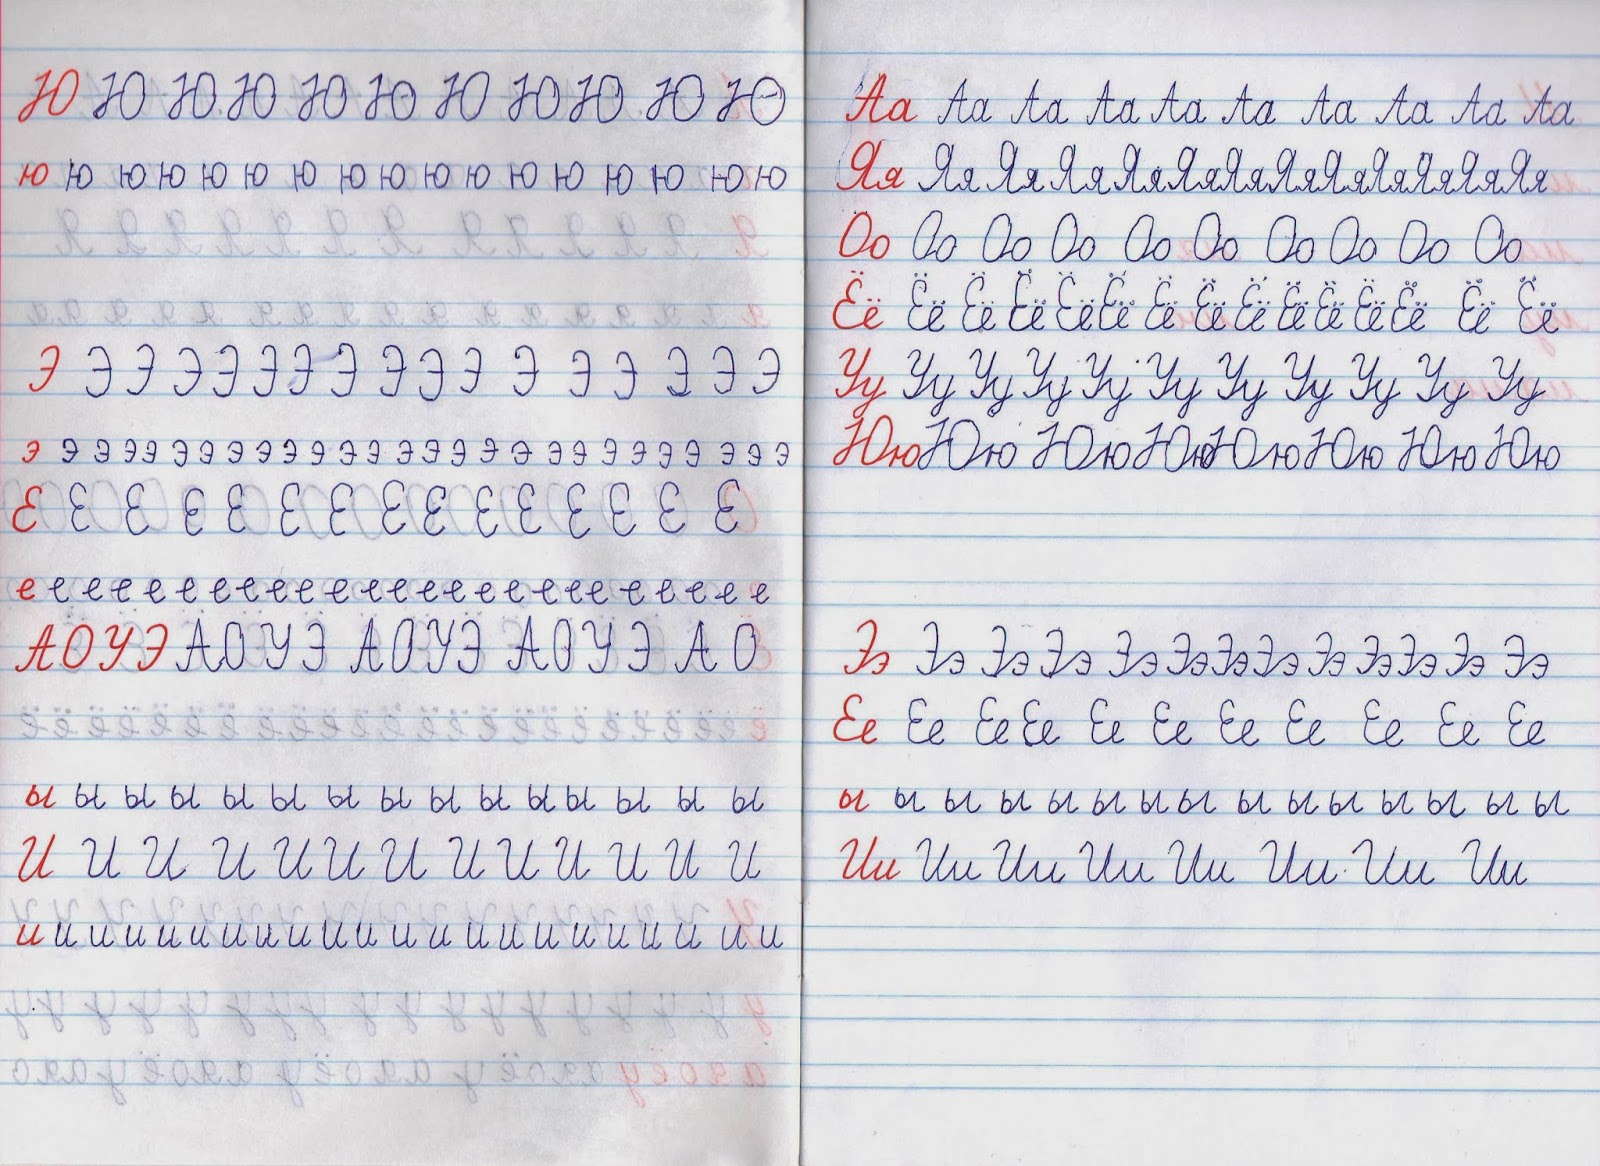 Ю Ю Ю Ю Ю Ю Ю Ю Ю Ю Ю
ю ю ю ю ю ю ю ю ю ю ю ю ю ю ю ю ю
Э Э Э Э Э Э Э Э Э Э Э Э Э Э Э Э Э
э э э э э э э э э э э э э э э э э э э э э э э э э э э
Е Е Е Е Е Е Е Е Е Е Е Е Е Е Е
е е е е е е е е е е е е е е е е е е е е е е е е е
АОУЭ АОУЭ АОУЭ АОУЭ АО
ы ы ы ы ы ы ы ы ы ы ы ы ы ы ы
И И И И И И И И И И И И И
и и и и и и и и и и и и и и и и и и и и и и
Аа Аа Аа Аа Аа Аа Аа Аа Аа Аа
Яя Яя Яя Яя Яя Яя Яя Яя Яя Яя Яя Яя Яя
Оо Оо Оо Оо Оо Оо Оо Оо Оо Оо
Ёё Ёё Ёё Ёё Ёё Ёё Ёё Ёё Ёё Ёё Ёё Ёё Ёё Ёё Ёё
Уу Уу Уу Уу Уу Уу Уу Уу Уу Уу Уу
Юю Юю Юю Юю Юю Юю Юю Юю
Ээ Ээ Ээ Ээ Ээ Ээ Ээ Ээ Ээ Ээ Ээ Ээ Ээ
Ее Ее Ее Ее Ее Ее Ее Ее Ее Ее Ее
ы ы ы ы ы ы ы ы ы ы ы ы ы ы ы
Ии Ии Ии Ии Ии Ии Ии Ии